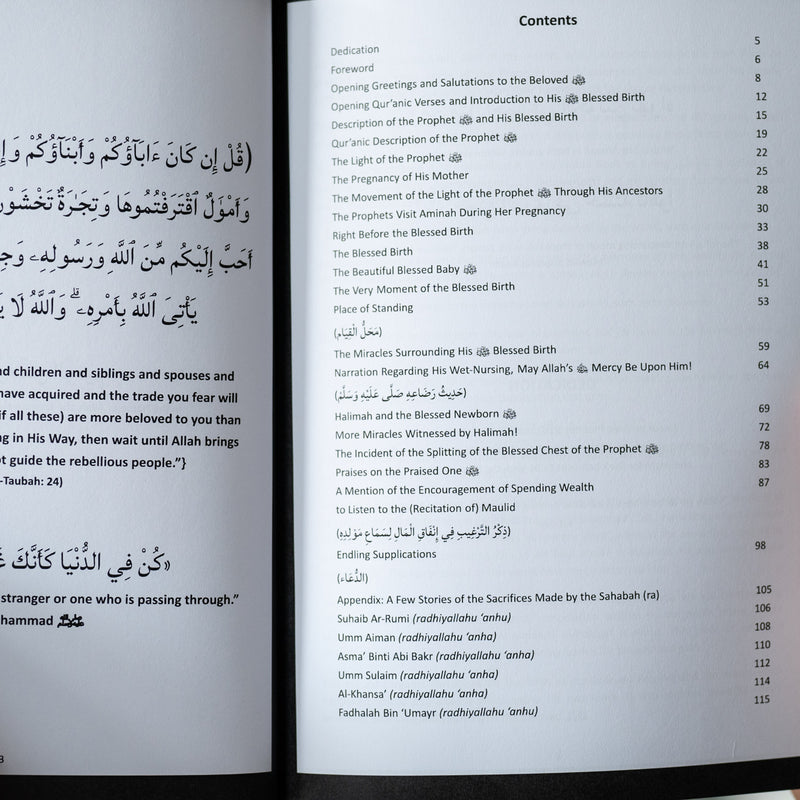 (قُلْ إِن كَانَ ءَابَآؤُكُمْ وَأَبْنَآؤُكُمْ
وَأَمْوَٰلٌ ٱقْتَرَفْتُمُوهَا وَتِجَـٰرَةٌ تَخْشَوْنَ
أَحَبَّ إِلَيْكُم مِّنَ ٱللَّهِ وَرَسُولِهِۦ
يَأْتِىَ ٱللَّهُ بِأَمْرِهِۦ ۗ وَٱللَّهُ لَا
children and siblings and spouses and
have acquired and the trade you fear will
if all these) are more beloved to you than
in His Way, then wait until Allah brings
guide the rebellious people.”}
-Taubah: 24)
«كُنْ فِي الدُّنْيَا كَأَنَّكَ
stranger or one who is passing through.”
3
Contents
Dedication 5
Foreword 6
Opening Greetings and Salutations to the Beloved ﷺ 8
Opening Qur’anic Verses and Introduction to His ﷺ Blessed Birth 12
Description of the Prophet ﷺ and His Blessed Birth 15
Qur’anic Description of the Prophet ﷺ 19
The Light of the Prophet ﷺ 22
The Pregnancy of His Mother 25
The Movement of the Light of the Prophet ﷺ Through His Ancestors 28
The Prophets Visit Aminah During Her Pregnancy 30
Right Before the Blessed Birth 33
The Blessed Birth 38
The Beautiful Blessed Baby ﷺ 41
The Very Moment of the Blessed Birth 51
Place of Standing 53
(مَحَلُّ الْقِيَامِ)
The Miracles Surrounding His ﷺ Blessed Birth 59
Narration Regarding His Wet-Nursing, May Allah’s Mercy Be Upon Him! 64
(حَدِيثُ رَضَاعِهِ صَلَّى عَلَيْهِ وَسَلَّمْ)
Halimah and the Blessed Newborn ﷺ 69
More Miracles Witnessed by Halimah! 72
The Incident of the Splitting of the Blessed Chest of the Prophet ﷺ 78
Praises on the Praised One ﷺ 83
A Mention of the Encouragement of Spending Wealth 87
to Listen to the (Recitation of) Maulid
(ذِكْرُ التَّرْغِيبِ فِي إِنْفَاقِ الْمَالِ لِسَمَاعِ مَوْلِدِهِ)
Endling Supplications 98
(الدُّعَاءَ)
Appendix: A Few Stories of the Sacrifices Made by the Sahabah (ra) 105
Suhaib Ar-Rumi (radhiyallahu ‘anhu) 106
Umm Aiman (radhiyallahu ‘anha) 108
Asma’ Binti Abi Bakr (radhiyallahu ‘anha) 110
Umm Sulaim (radhiyallahu ‘anha) 112
Al-Khansa’ (radhiyallahu ‘anha) 114
Fadhalah Bin ‘Umayr (radhiyallahu ‘anhu) 115